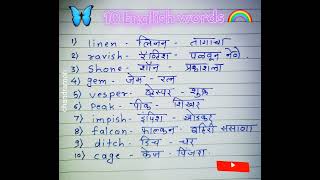 10 English words
1) linen - लिनन - तागाचा
2) ravish - रॅव्हिश - पळवून नेणे.
3) Shone - शॉन - प्रकाशला
4) gem - जेम - रत्न
5) vesper - वेस्पर - शुक्र
6) Peak - पीक - शिखर
7) impish - इंपिश - खोडकर
8) falcon - फाल्कन - बहिरी ससाणा
9) ditch - डिच - चर
10) cage - केज - पिंजरा